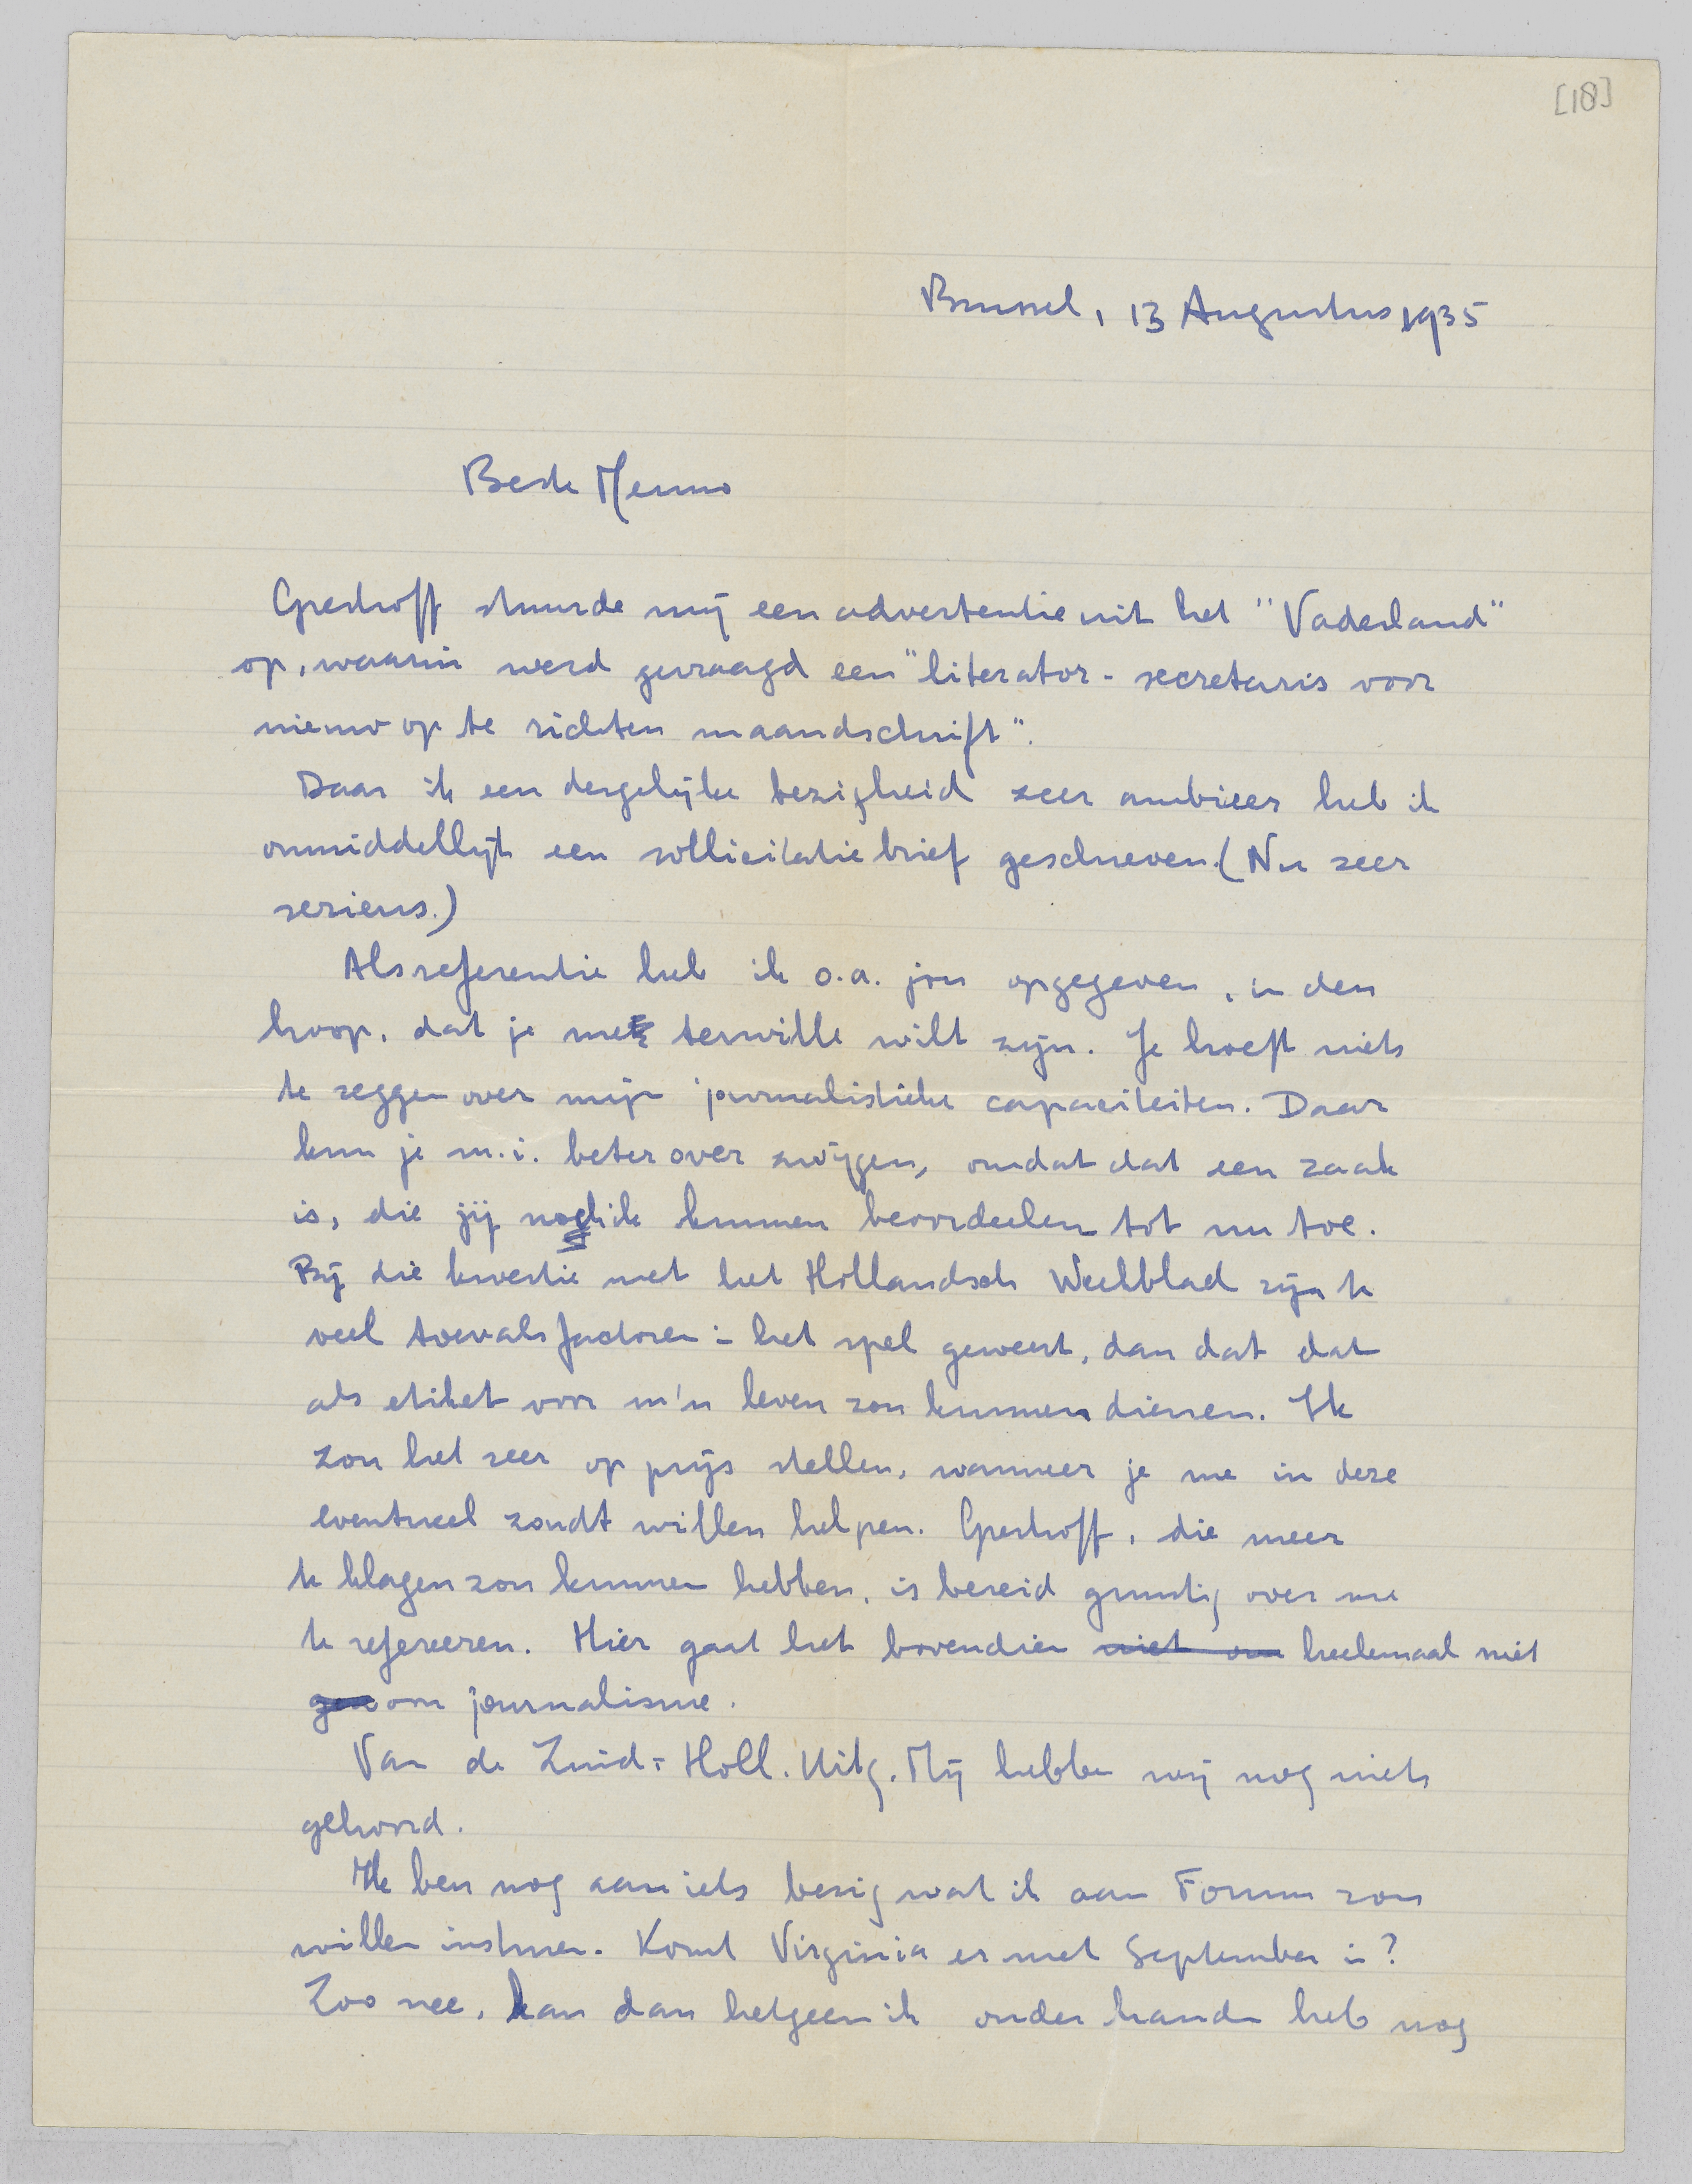 [18]
Brussel, 13 Augustus 1935
Beste Menno
Greshoff stuurde mij een advertentie uit het "Vaderland"
op, waarin werd gevraagd een "literator - secretaris voor
nieuw op te richten maandschrift".
Daar ik een dergelijke bezigheid zeer ambieer heb ik
onmiddellijk een sollicitatiebrief geschreven. (Nu zeer
serieus.)
Als referentie heb ik o.a. jou opgegeven, in den
hoop, dat je me terwille wilt zijn. Je hoeft niets
te zeggen over mijn journalistieke capaciteiten. Daar
kun je m.i. beter over zwijgen, omdat dat een zaak
is, die jij noch ik kunnen beoordeelen tot nu toe.
Bij die kwestie met het Hollandsch Weekblad zijn te
veel toevalsfactoren in het spel geweest, dan dat dat
als etiket voor m'n leven zou kunnen dienen. Ik
zou het zeer op prijs stellen, wanneer je me in deze
eventueel zoudt willen helpen. Greshoff, die meer
te klagen zou kunnen hebben, is bereid gunstig over me
te refereeren. Hier gaat het bovendien niet om heelemaal niet
om journalisme.
Van de Zuid-Holl. Uitg. Mij hebben wij nog niets
gehoord.
Ik ben nog aan iets bezig wat ik aan Forum zou
willen insturen. Komt Virginia er met September in?
Zoo nee, kan dan hetgeen ik onder handen heb nog